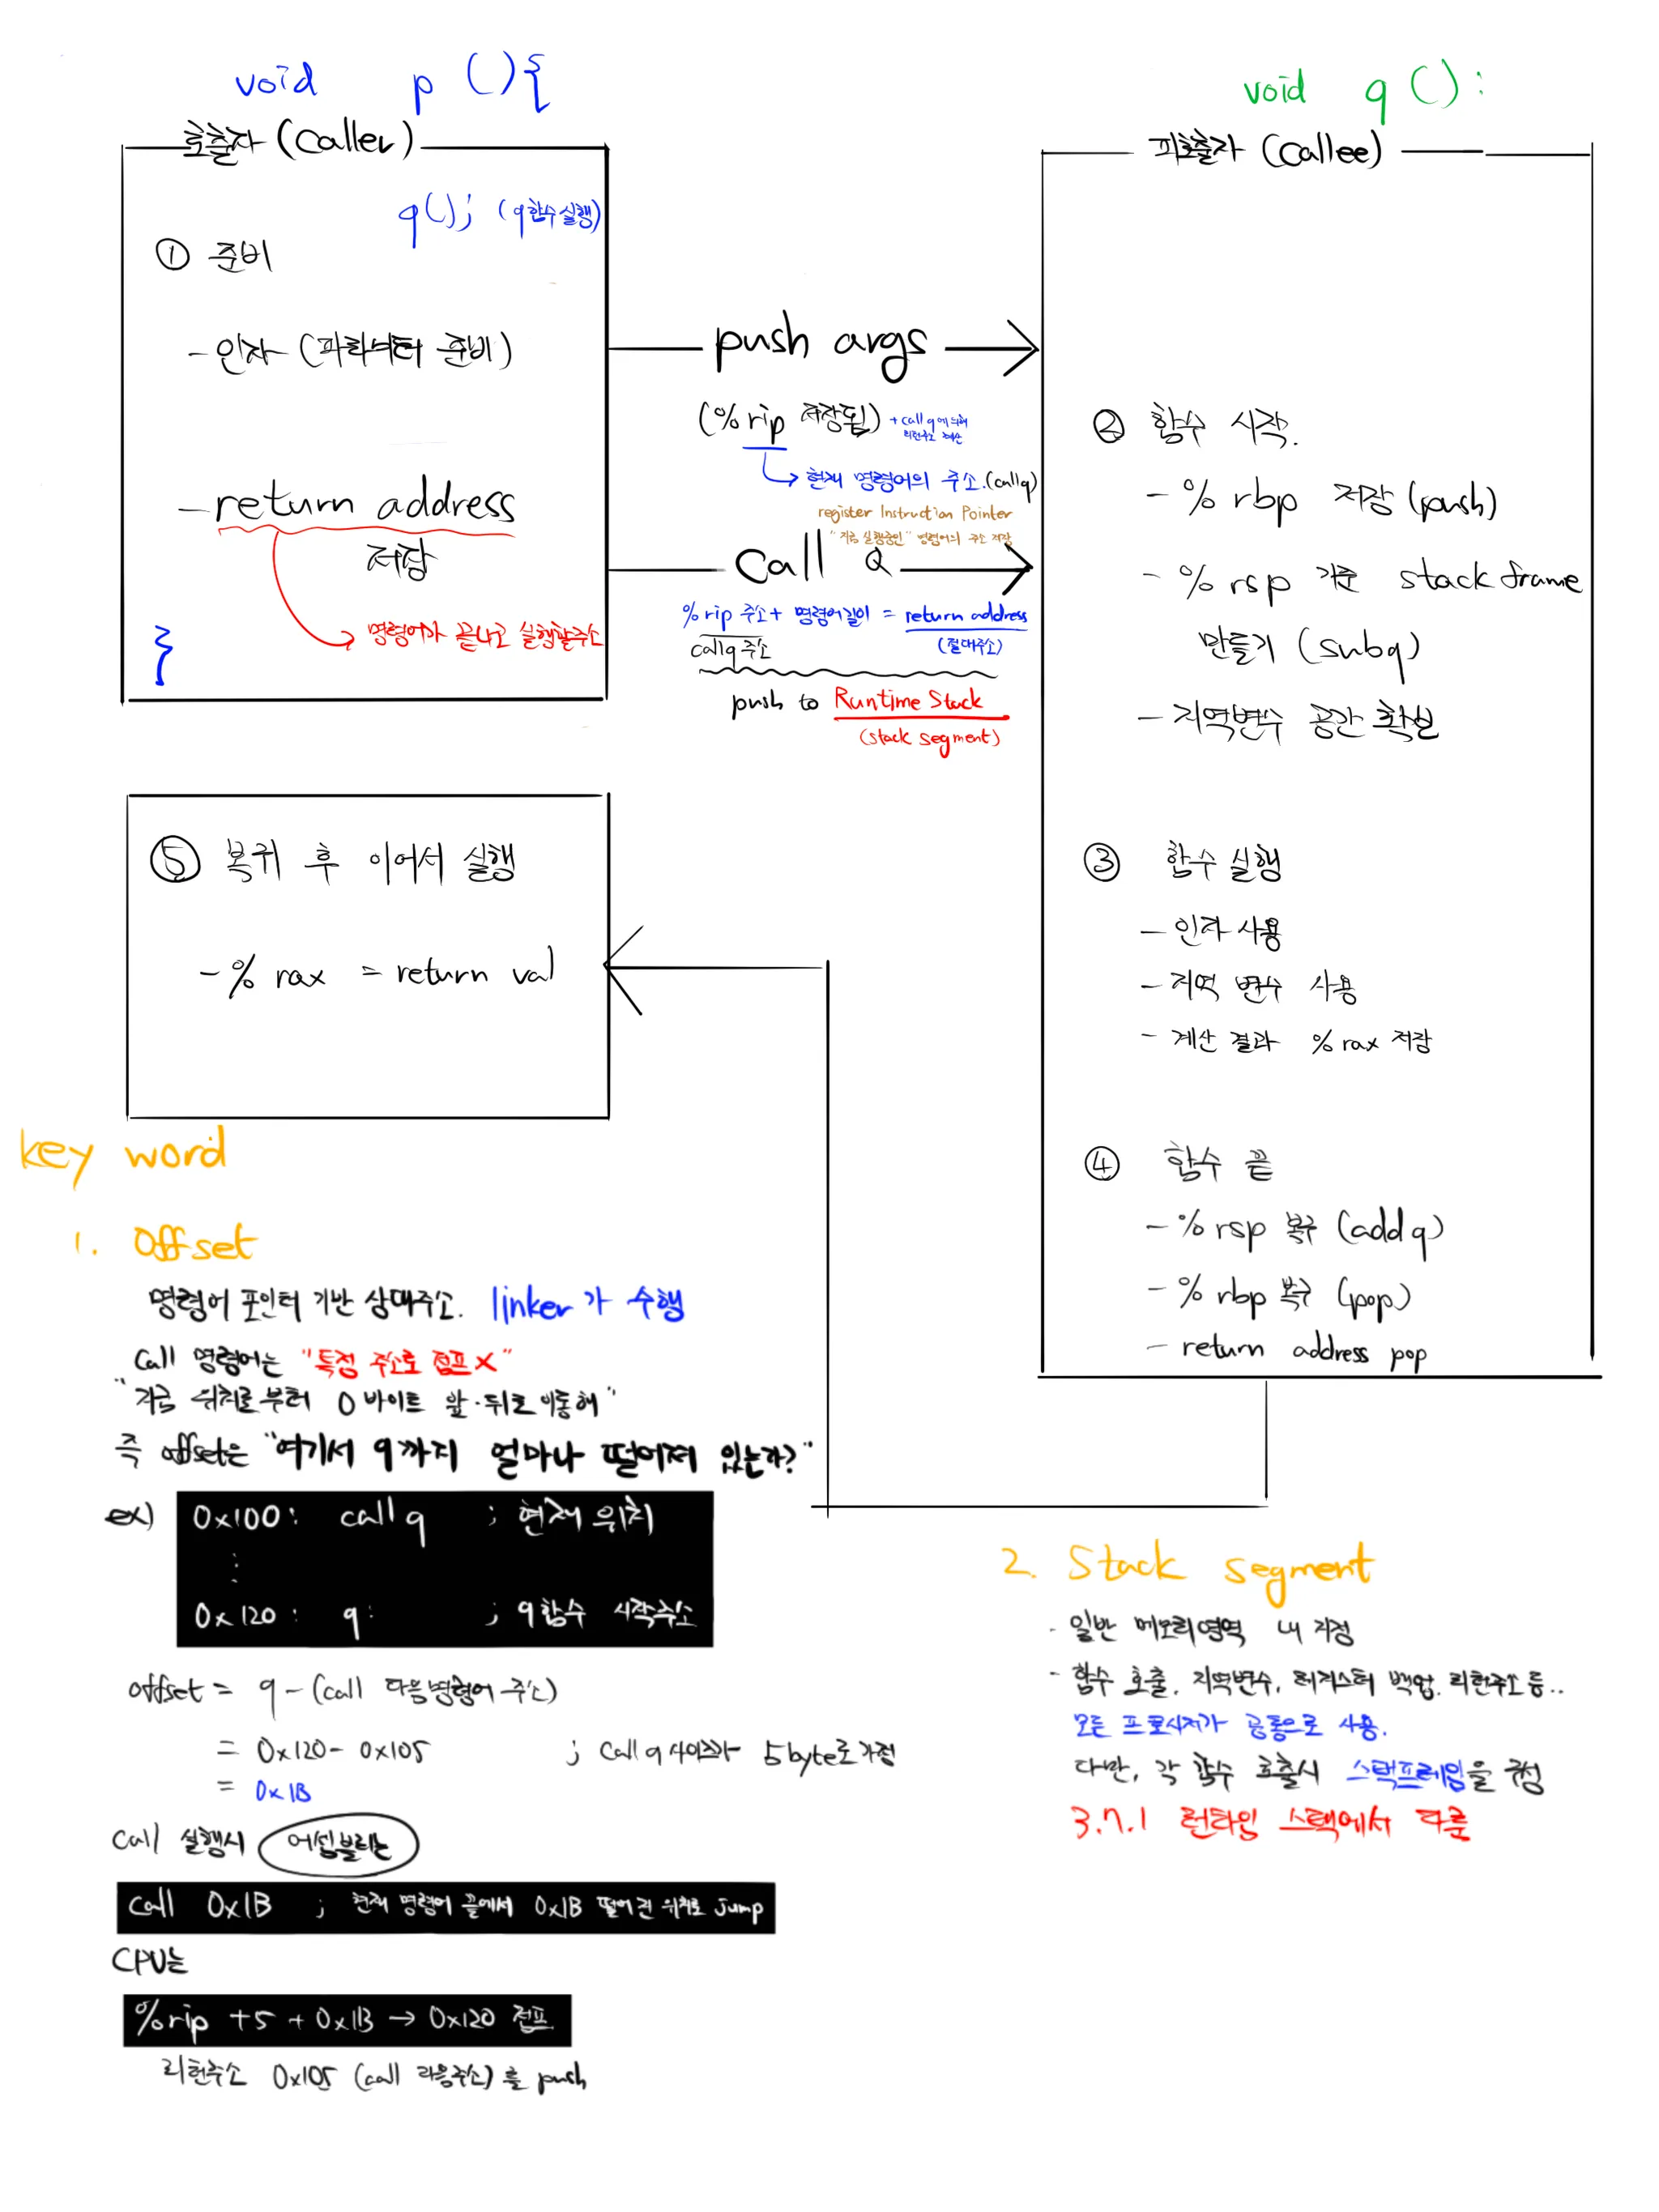 void p (){
호출자 (Caller)
q(); (q함수 실행)
① 준비
- 인자 (파라미터 준비)
- return address
저장
명령어가 끝나고 실행할주소
}
push args
(%rip 저장됨) + call q에 의해
리턴주소 계산
현재 명령어의 주소.(callq)
register Instruction Pointer
"지금 실행중인" 명령어의 주소 저장
Call Q
%rip 주소 + 명령어길이 = return address
callq 주소 (절대주소)
push to Runtime Stack
(stack segment)
void q ():
피호출자 (callee)
② 함수 시작.
- %rbp 저장 (push)
- %rsp 기준 stack frame
만들기 (subq)
- 지역변수 공간 확보
③ 함수 실행
- 인자 사용
- 지역 변수 사용
- 계산 결과 %rax 저장
④ 함수 끝
- %rsp 복구 (addq)
- %rbp 복구 (pop)
- return address pop
⑤ 복귀 후 이어서 실행
- %rax = return val
key word
1. Offset
명령어 포인터 기반 상대주소. linker가 수행
Call 명령어는 "특정 주소로 점프 X"
"지금 위치로부터 0 바이트 앞·뒤로 이동해"
즉 offset은 "여기서 q까지 얼마나 떨어져 있는가?"
ex) 0x100: call q ; 현재 위치
⋮
0x120: q: ; q함수 시작주소
offset = q - (call 다음명령어 주소)
= 0x120 - 0x105 ; call q 사이즈가 5byte로 가정
= 0x1B
Call 실행시 어셈블리는
call 0x1B ; 현재 명령어 끝에서 0x1B 떨어진 위치로 jump
CPU는
%rip + 5 + 0x1B → 0x120 점프
리턴주소 0x105 (call 다음주소) 를 push
2. Stack segment
- 일반 메모리영역 내 지정
- 함수 호출, 지역변수, 레지스터 백업, 리턴주소 등..
모든 프로시저가 공통으로 사용.
다만, 각 함수 호출시 스택프레임을 구성
3.7.1 런타임 스택에서 다룸